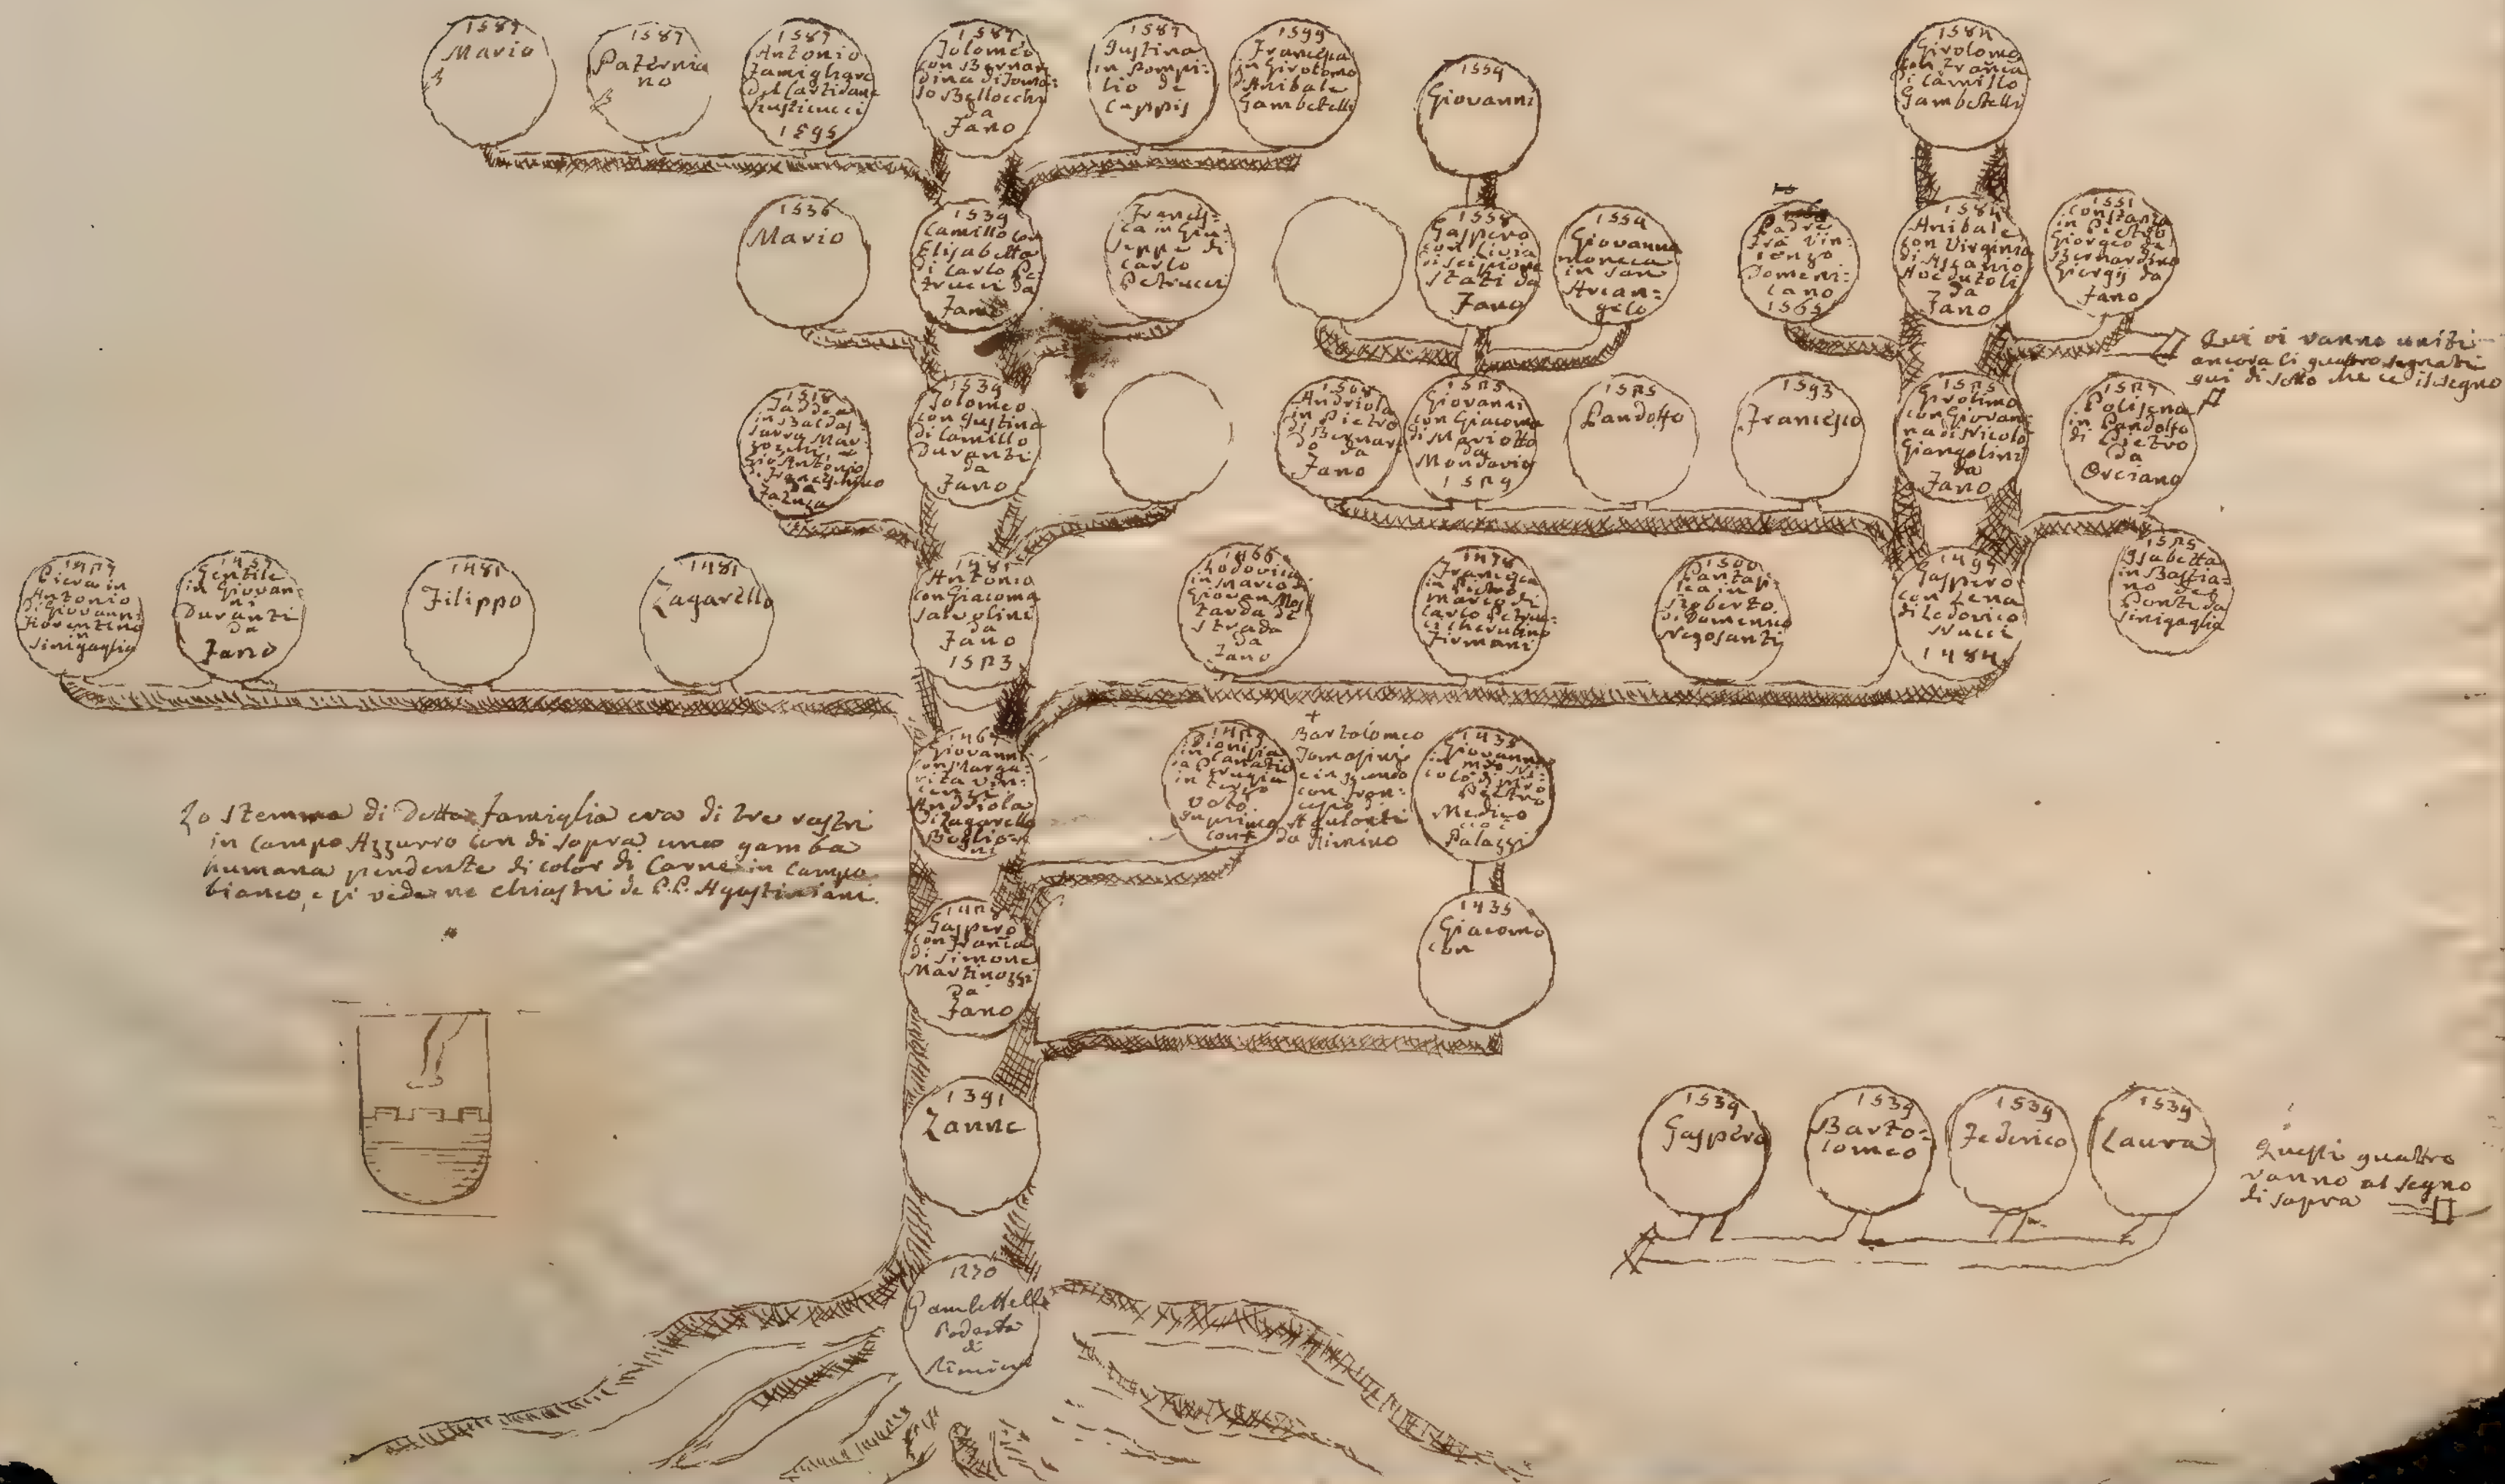 1587
Mario
1587
Paternia
no
1587
Antonio
famigliare
del Cardinale
Rusticucci
1595
1587
Tolomeo
con Bernar
dina di Toma:
so Bellocchi
da
Fano
1587
Gustina
in Pompi:
lio de
Cuppis
1599
Francesca
in Girolomo
d'Anibale
Gambetelli
1559
Giovanni
1584
Girolomo
con Franca
di Camillo
Gambetelli
1536
Mario
1539
Camillo con
Elisabetta
di Carlo Pe:
trucci da
Fano
Frances=
ca in Giu
seppe di
Carlo
Petrucci
1558
Gaspero
con Livia
di Scipione
Stati da
Fano
1559
Giovanna
monaca
in San
Arcan=
gelo
Padre
frà Vin:
cenzo
Domeni:
cano
1565
1584
Anibale
con Virginia
di Ascanio
da
Fano
1551
Constanza
in Pietro
Giorgio di
Bernardino
Giorgij da
Fano
Qui vi vanno uniti
ancora li quattro segnati
qui di sotto che ce il segno
1518
Taddea
in Baldas
Gio Antonio
da
1539
Tolomeo
con Gustina
di Camillo
Duranti
da
Fano
1508
Andriola
in Pietro
di Bernar
do da
Fano
1523
Giovanni
con Giacoma
di Mariotto
da
Mondavio
1529
1525
Pandolfo
1593
Francesco
1525
Girolimo
con Giovan=
na di Nicolo
Giangolini
da
Fano
1527
Polisena
in Pandolfo
di Pietro
da
Orciano
Piera in
Antonio
di Giovanni
Fiorentino
in
Sinigaglia
1457
Gentile
in Giovan=
ni
Duranti
da
Fano
1481
Filippo
1481
Zagarello
1481
Antonio
con Giacoma
Salvolini
da
Fano
1523
1466
Lodovica
in Mario di
Giovan
da
Strada
da
Fano
1478
Francesca
in Pietro
di
Carlo Petruc=
ci Cherubino
Firmani
1500
Pantasi=
lea in
Roberto
di Domenico
Negosanti
1495
Gaspero
con Lena
di Lodovico
Nucci
1484
1525
Isabetta
in Bastia=
no del
Ponte da
Sinigaglia
1467
Giovanni
con Marga=
rita
Andriola
di Zagarello
Boglio=
ni
Dionisia
in
in terzo
voto.
in primo
con +
+
Bartolomeo
Tomasini
e in 2undo
con Fran=
cesco di
Agulanti
da Rimino
1435
Giovanna
in mro Ni=
colò di mro
Pietro
Medico
cioè
Palazzi
Lo Stemma di Detta famiglia era di tre rastri
in campo Azzurro con di sopra una gamba
humana pendente di color di Carne in campo
bianco, e si vede ne chiostri de P.P. Agostiniani.
Gaspero
con Franca
di Simone
Martinozzi
da
Fano
1435
Giacomo
con
1391
Zanne
1539
Gaspero
1539
Barto=
lomeo
1539
Federico
1539
Laura
Questi quattro
vanno al segno
di sopra
1270
Gambettelli
Podestà
di
Rimini